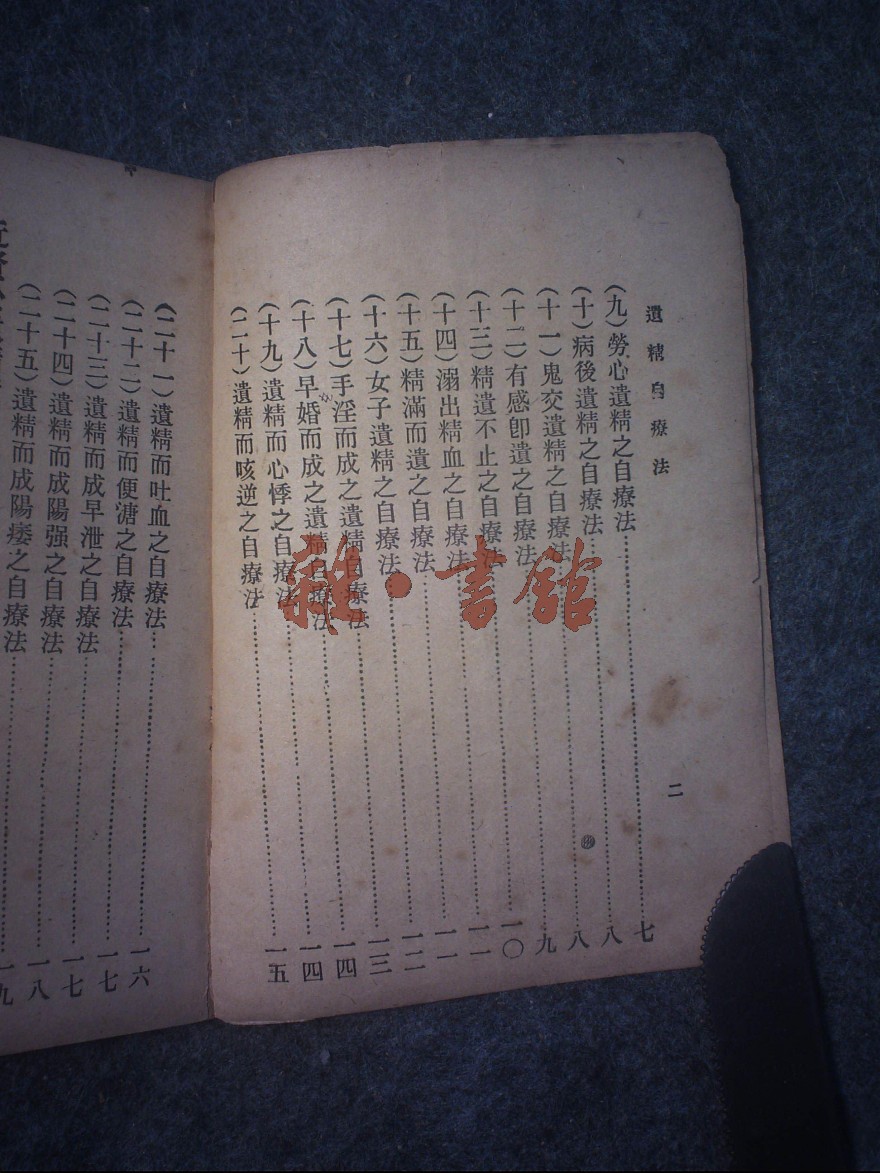 遺精自療法
二
(九)勞心遺精之自療法……七
(十)病後遺精之自療法……八
(十一)鬼交遺精之自療法……八
(十二)有感卽遺之自療法……九
(十三)精遺不止之自療法……一〇
(十四)溺出精血之自療法……一一
(十五)精滿而遺之自療法……一一
(十六)女子遺精之自療法……一二
(十七)手淫而成之遺精自療法……一三
(十八)早婚而成之遺精自療法……一四
(十九)遺精而心悸之自療法……一四
(二十)遺精而咳逆之自療法……一五
(二十一)遺精而吐血之自療法……一六
(二十二)遺精而便溏之自療法……一七
(二十三)遺精而成早泄之自療法……一七
(二十四)遺精而成陽强之自療法……一八
(二十五)遺精而成陽痿之自療法……一九
雜·書館